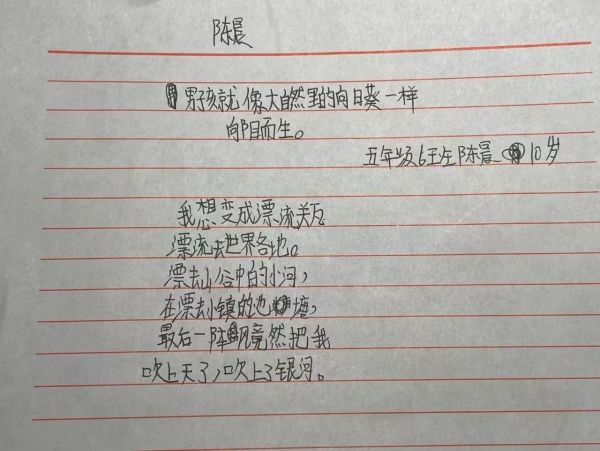 陈晨
男孩就像大自然里的向日葵一样
向阳而生。
五年级6班陈晨 10岁
我想变成漂流瓶
漂流去世界各地。
漂去山谷中的小河,
在漂去小镇的池塘,
最后一阵风竟然把我
吹上天了,吹上了银河。